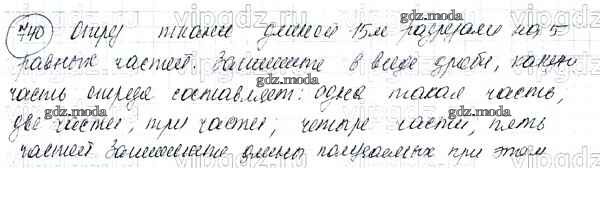 740 Отрез ткани длиной 15м разрезали на 5
равных частей. Запишите в виде дроби, какую
часть отреза составляет: одна такая часть,
две части, три части, четыре части, пять
частей Запишите длины получаемых при этом